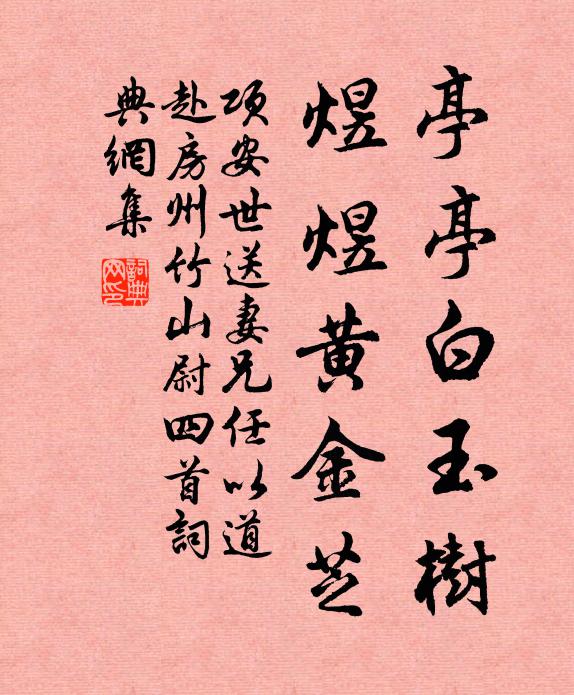 亭亭白玉樹
煜煜黃金芝
項安世送妻兄任以道
赴房州竹山尉四首詞
典網集
詞典
网印